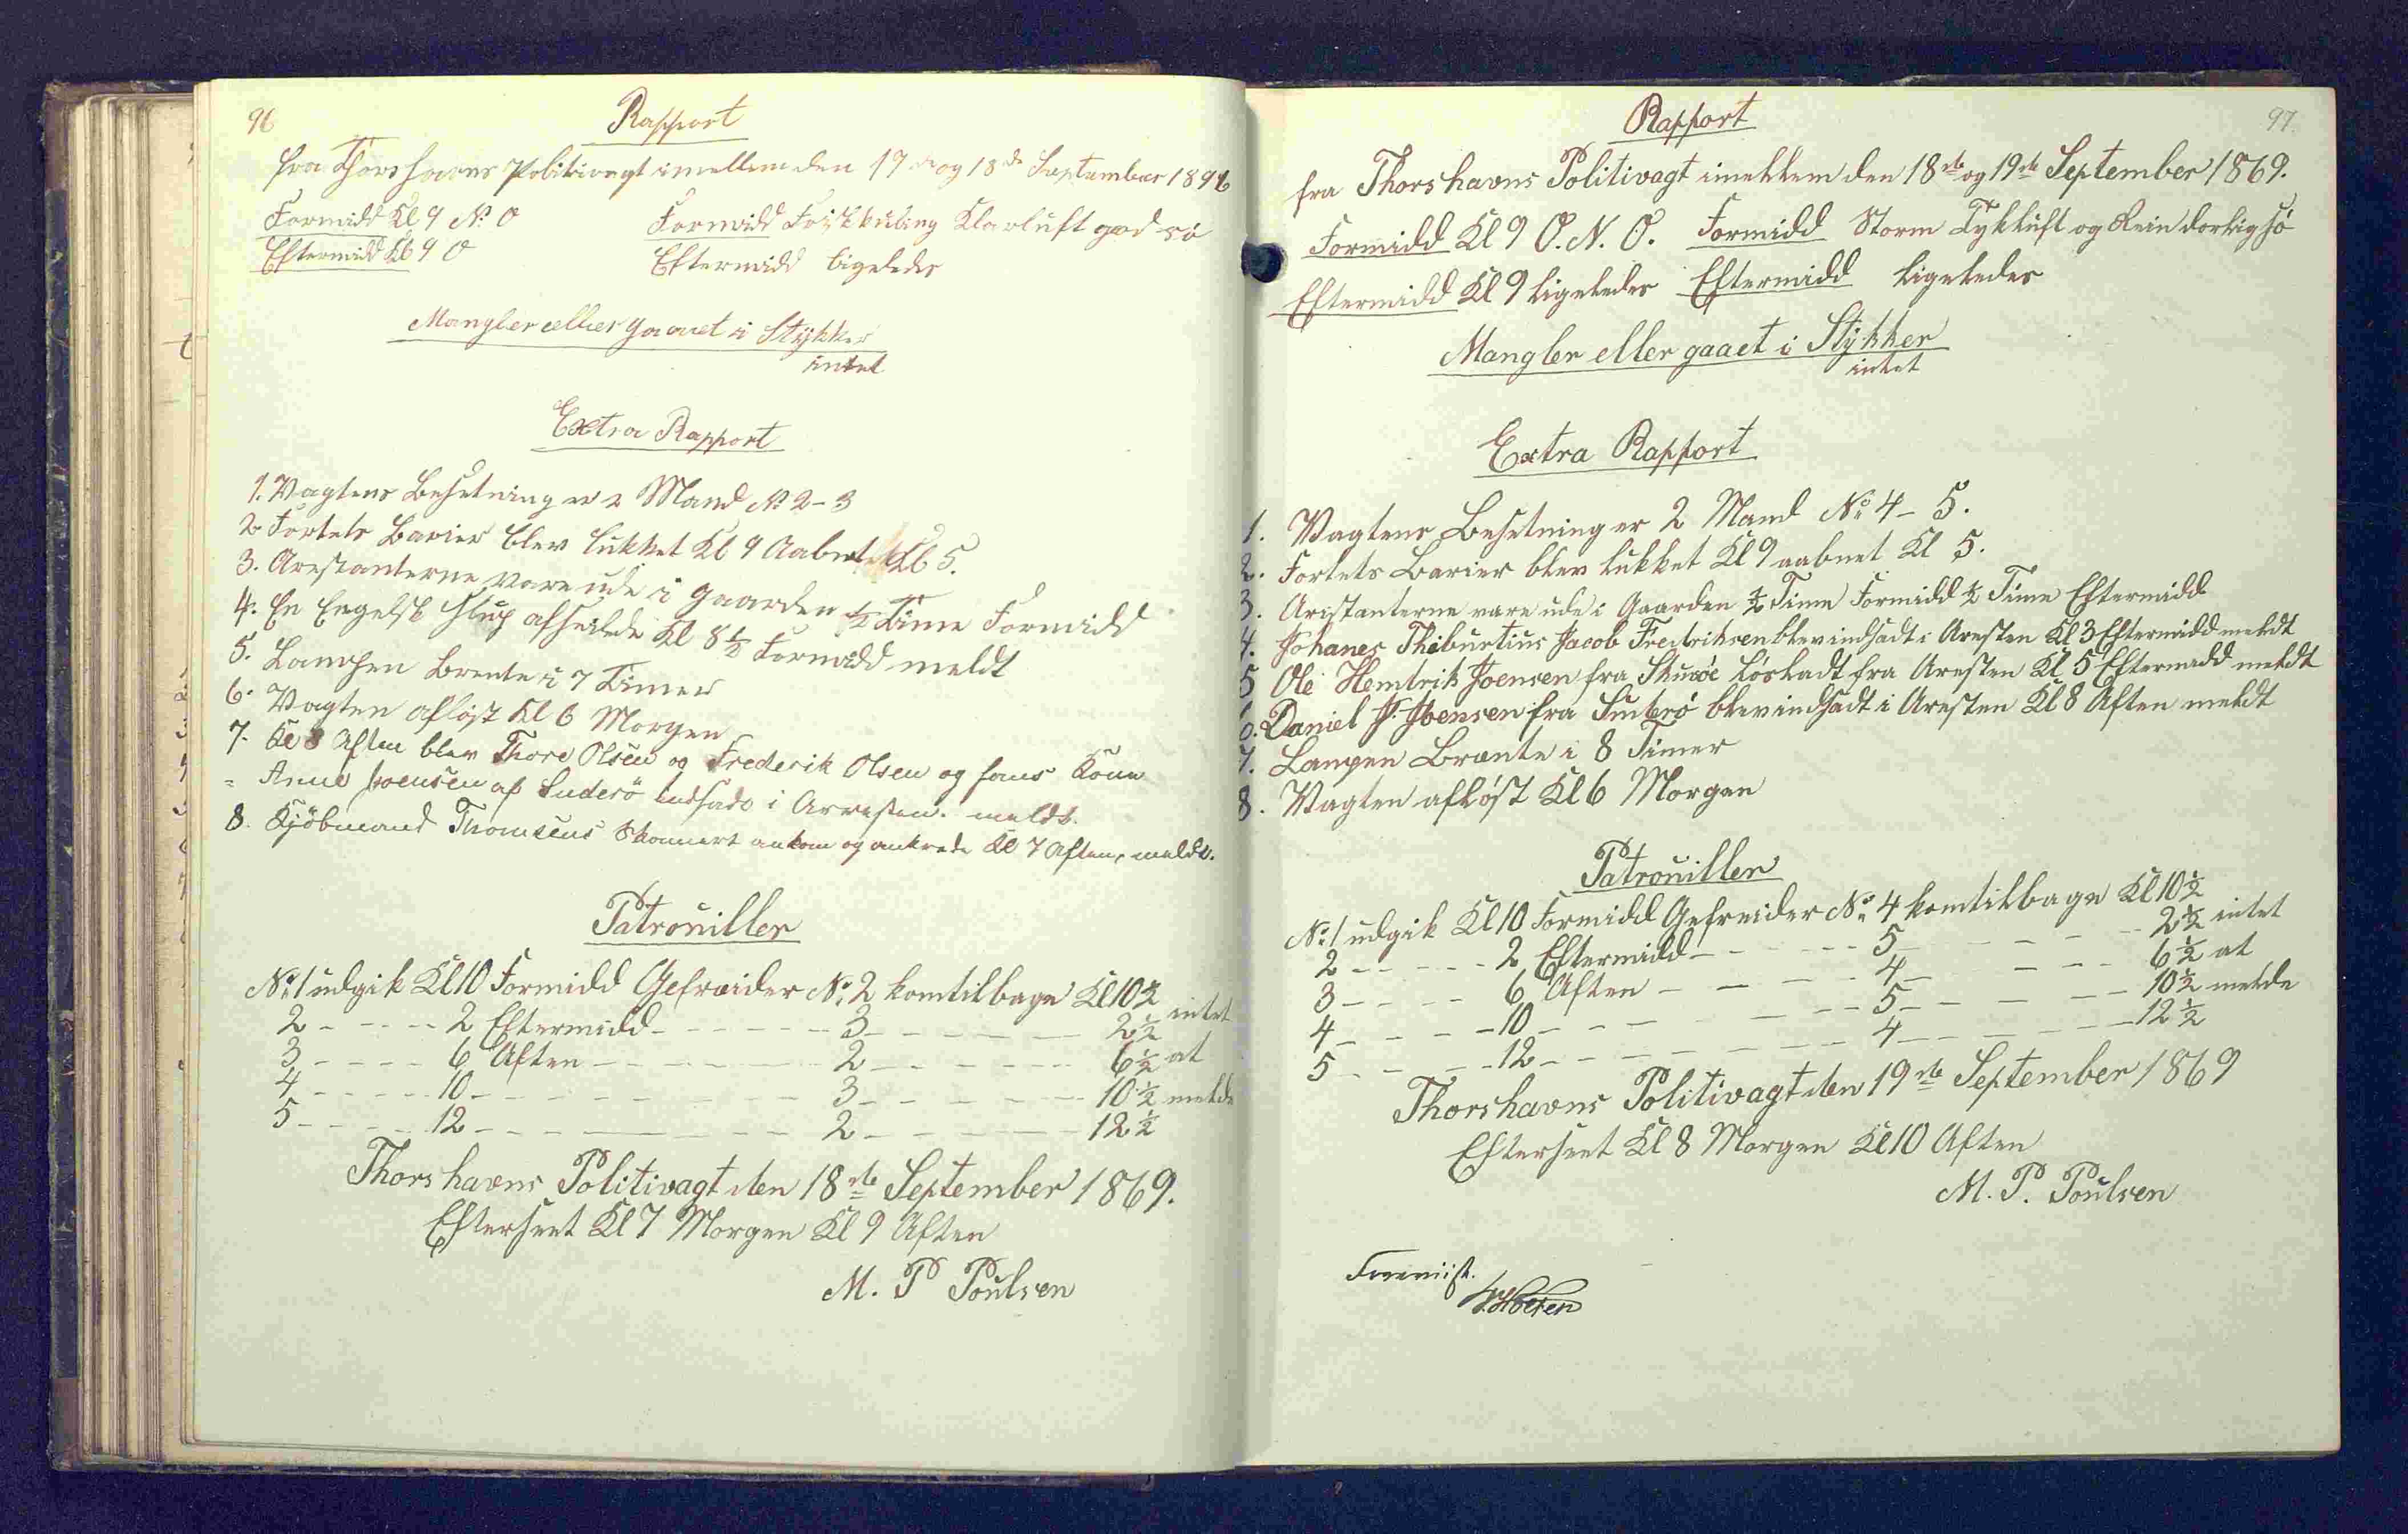 96
Rapport
fra Thorshavns Politivagt imellem den 17de og 18de September 1896
Formidd Kl 9 N. O Formidd Friskkuling Klarluft god sö
Eftermidd Kl 9 O Eftermidd ligeledes
Mangler eller gaaet i Stÿkker
intet
Extra Rapport
1. Vagtens Besetning er 2 Mand No 2-3
2 Fortets Barier blev lukket Kl 9 Aabnet Kl 5.
3. Arestanterne vare ude i Gaarden ½ Time Formidd
4. En Engelsk Slup afseilede Kl 8½ Formidd meldt
5. Lampen Brente i 7 Timer
6. Vagten afløst Kl 6 Morgen
7. Kl 8 Aften blev Thore Olsen og Frederik Olsen og hans Kone
= Anne Joensen af Suderö indsadt i Arresten. meldt.
8. Kjöbmand Thomsens Skonnert ankom og ankrede Kl 7 Aften, meldt.
Patrouiller
No 1 udgik Kl 10 Formidd Gefreider No 2 kom tilbage Kl 10½
2 - - - - - 2 Eftermidd - - - - - 3 - - - - - 2½ intet
3 - - - - 6 Aften - - - - - 2 - - - - - 6½ at
4 - - - - - 10 - - - - - 3 - - - - - 10½ melde
5 - - - - 12 - - - - - 2 - - - - - 12½
Thorshavns Politivagt den 18de September 1869.
Efterseet Kl 7 Morgen Kl 9 Aften
M. P Poulsen
97.
Rapport
fra Thorshavns Politivagt imellem den 18de og 19de September 1869.
Formidd Kl 9 O. N. O. Formidd Storm Tykluft og Rein dorlig sö
Eftermidd Kl 9 ligeledes Eftermidd ligeledes
Mangler eller gaaet i Stÿkker
intet
Extra Rapport
1. Vagtens Besetning er 2 Mand No 4-5.
2. Fortets Barier blev lukket Kl 9 aabnet Kl 5.
3. Aristanterne vare ude i Gaarden ½ Time Formidd ½ Time Eftermidd
4. Johanes Thiburtius Jacob Fredriksen blev indsadt i Aresten Kl 3 Eftermidd meldt
5 Ole Hendrik Joensen fra Skuöe Löskadt fra Aresten Kl 5 Eftermidd meldt
6. Daniel J. Joensen fra Suderö blev indsadt i Aresten Kl 8 Aften meldt
7. Lampen Brænte i 8 Timer
8. Vagten afløst Kl 6 Morgen
Patrouiller
No 1 udgik Kl 10 Formidd Gefreider No 4 kom tilbage Kl 10½
2 - - - - - 2 Eftermidd - - - - - 5 - - - - - 2½ intet
3 - - - - 6 Aften - - - - 4 - - - - 6½ at
4 - - - - 10 - - - - - 5 - - - - - 10½ melde
5 - - - - 12 - - - - - 4 - - - - - 12½
Thorshavns Politivagt den 19de September 1869
Efterseet Kl 8 Morgen Kl 10 Aften
M. P. Poulsen
Foreviist.